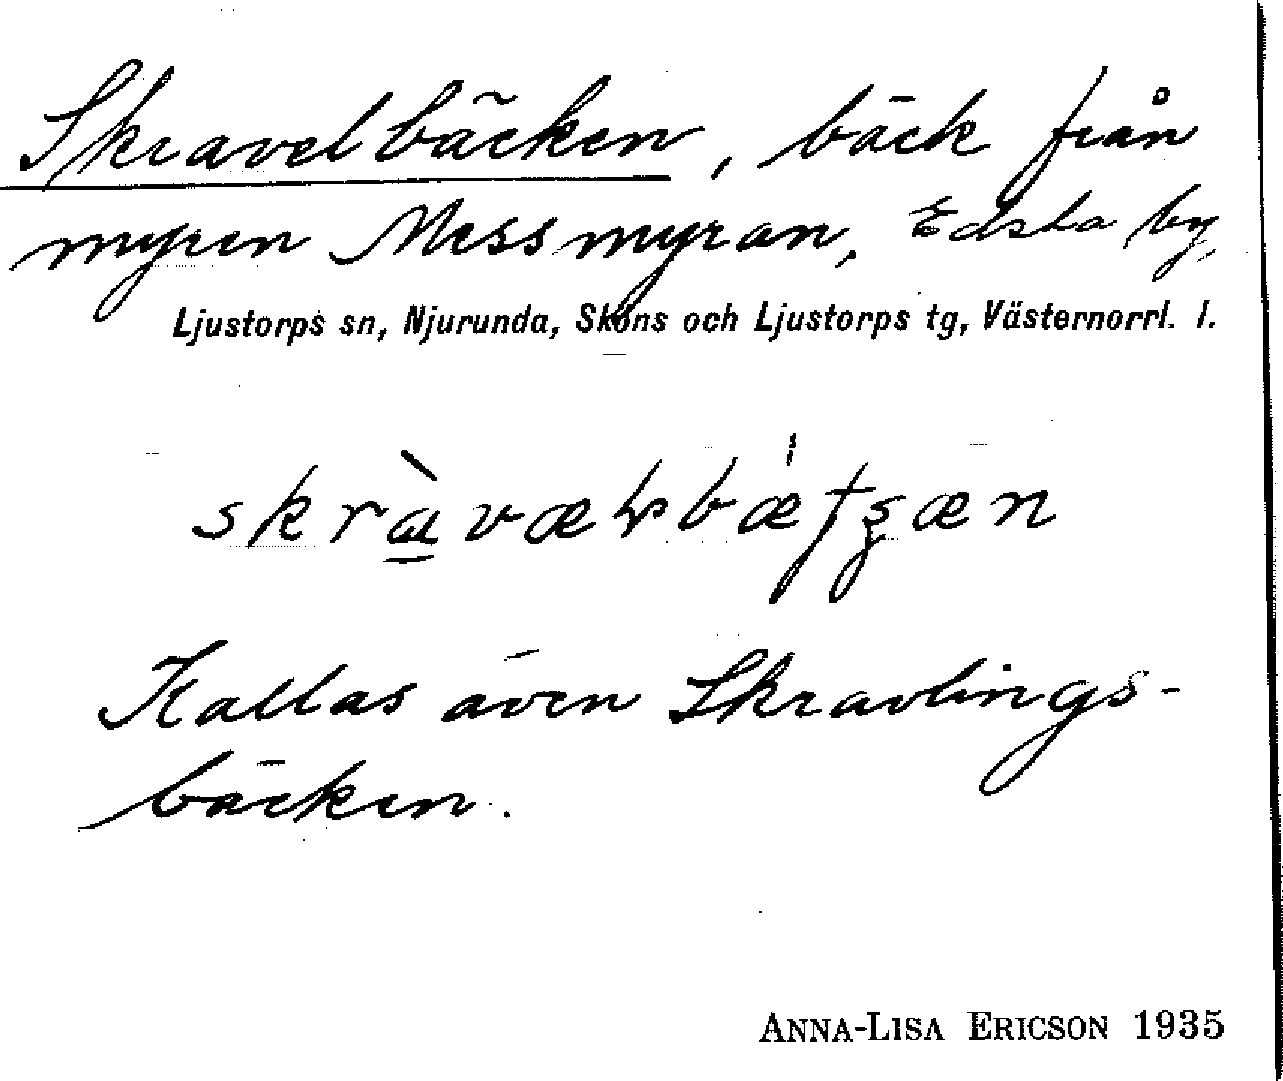 Skravelbäcken, bäck från
myren Messmyran, Edsta by,
Ljustorps sn, Njurunda, Sköns och Ljustorps tg, Västernorrl. l.
Kallas även Skravlings-
bäcken.
ANNA-LISA ERICSON 1935